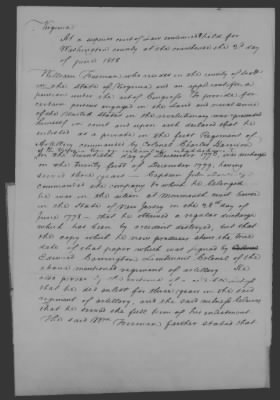 Virginia
At a superior court of law continued & held for
Washington county at the courthouse the 3d day
of June 1818
William Freeman who resides in the county of
in the State of Virginia and an applicant for a
pension under the act of Congress to provide for
certain persons engaged in the Land and naval service
of the United States in the revolutionary war presented
himself in court and upon oath declared that he
enlisted as a private in the first Regiment of
Artillery commanded by Colonel Charles Harrison
in the
on the twentieth day of December 1776, was discharged
on the twenty first of December 1779, having
served three years — Captain John
commanded the company to which he belonged
he was in the action at Monmouth court house
in the State of New Jersey on the 28th day of
June 1778 — that he obtained a regular discharge
which has been by accident destroyed, but that
the copy which he now produces shews the true
date of that paper which was signed by
Edward Carrington Lieutenant Colonel of the
above mentioned regiment of artillery. He
also proves by the evidence of
that he did enlist for three years in the said
regiment of artillery, and the said witness believes
that he served the full term of his enlistment
The said Wm. Freeman further stated that